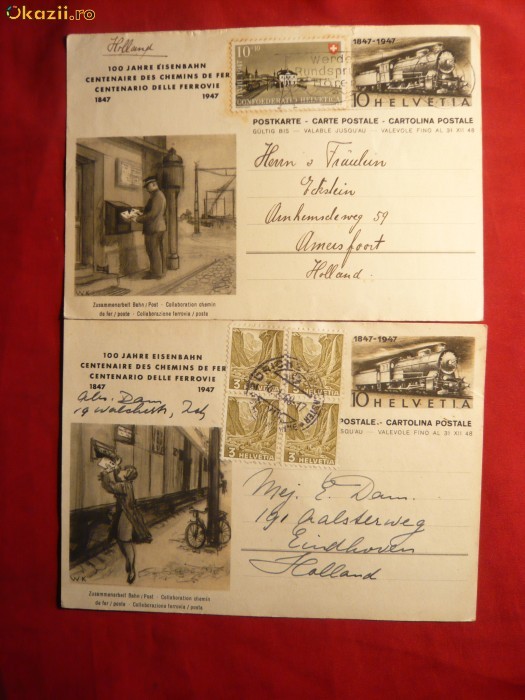 Okazii.ro
Holland
100 JAHRE EISENBAHN
CENTENAIRE DES CHEMINS DE FER
CENTENARIO DELLE FERROVIE
1847 1947
10+10
CONFOEDERATIO HELVETICA
Werde
Rundspr
Hörer
1847-1947
10 HELVETIA
POSTKARTE - CARTE POSTALE - CARTOLINA POSTALE
GÜLTIG BIS - VALABLE JUSQU'AU - VALEVOLE FINO AL 31 XII 48
Herrn v Fräulein
Eckstein
Arnhemseweg 59
Amersfoort
Holland.
WK
Zusammenarbeit Bahn/Post - Collaboration chemin
de fer/poste - Collaborazione ferrovia/posta
100 JAHRE EISENBAHN
CENTENAIRE DES CHEMINS DE FER
CENTENARIO DELLE FERROVIE
1847 1947
Abs. Dam
19
3 HELVETIA
3 HELVETIA
3 HELVETIA
3 HELVETIA
1847-1947
10 HELVETIA
POSTALE - CARTOLINA POSTALE
JSQU'AU - VALEVOLE FINO AL 31 XII 48
Mej. E. Dam.
191 Aalsterweg
Eindhoven
Holland
WK
Zusammenarbeit Bahn/Post - Collaboration chemin
de fer/poste - Collaborazione ferrovia/posta